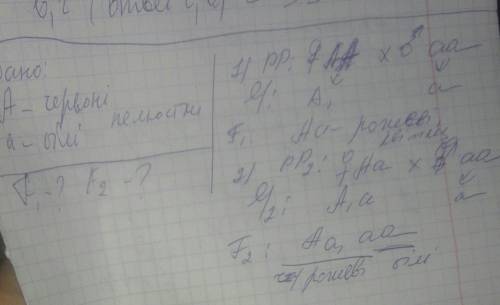 дано:
A - червоні
a - білі
пелюстки
F₁ - ? F₂ - ?
1) PP: ♀ AA x ♂ aa
G: A, a
F₁ Aa - рожеві
2) PP₂: ♀ Aa x ♂ aa
G₂: A, a a
F₂: Aa, aa
рожеві білі